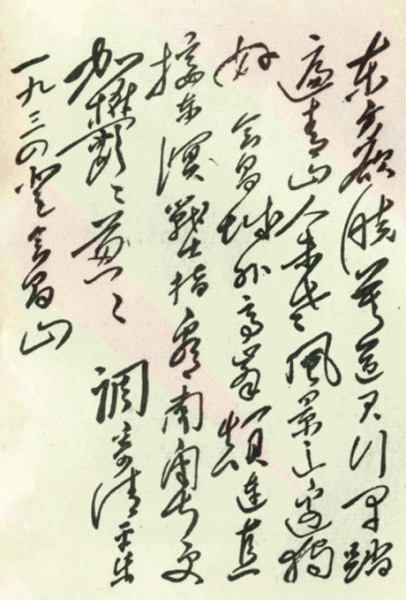 东方欲曉莫道君行早踏
遍青山人未老風景这边独
好 会昌城外高峯顛連直
接东溟戰士指看南粤更
加欝〻葱〻 調寄清平乐
一九三四登会昌山